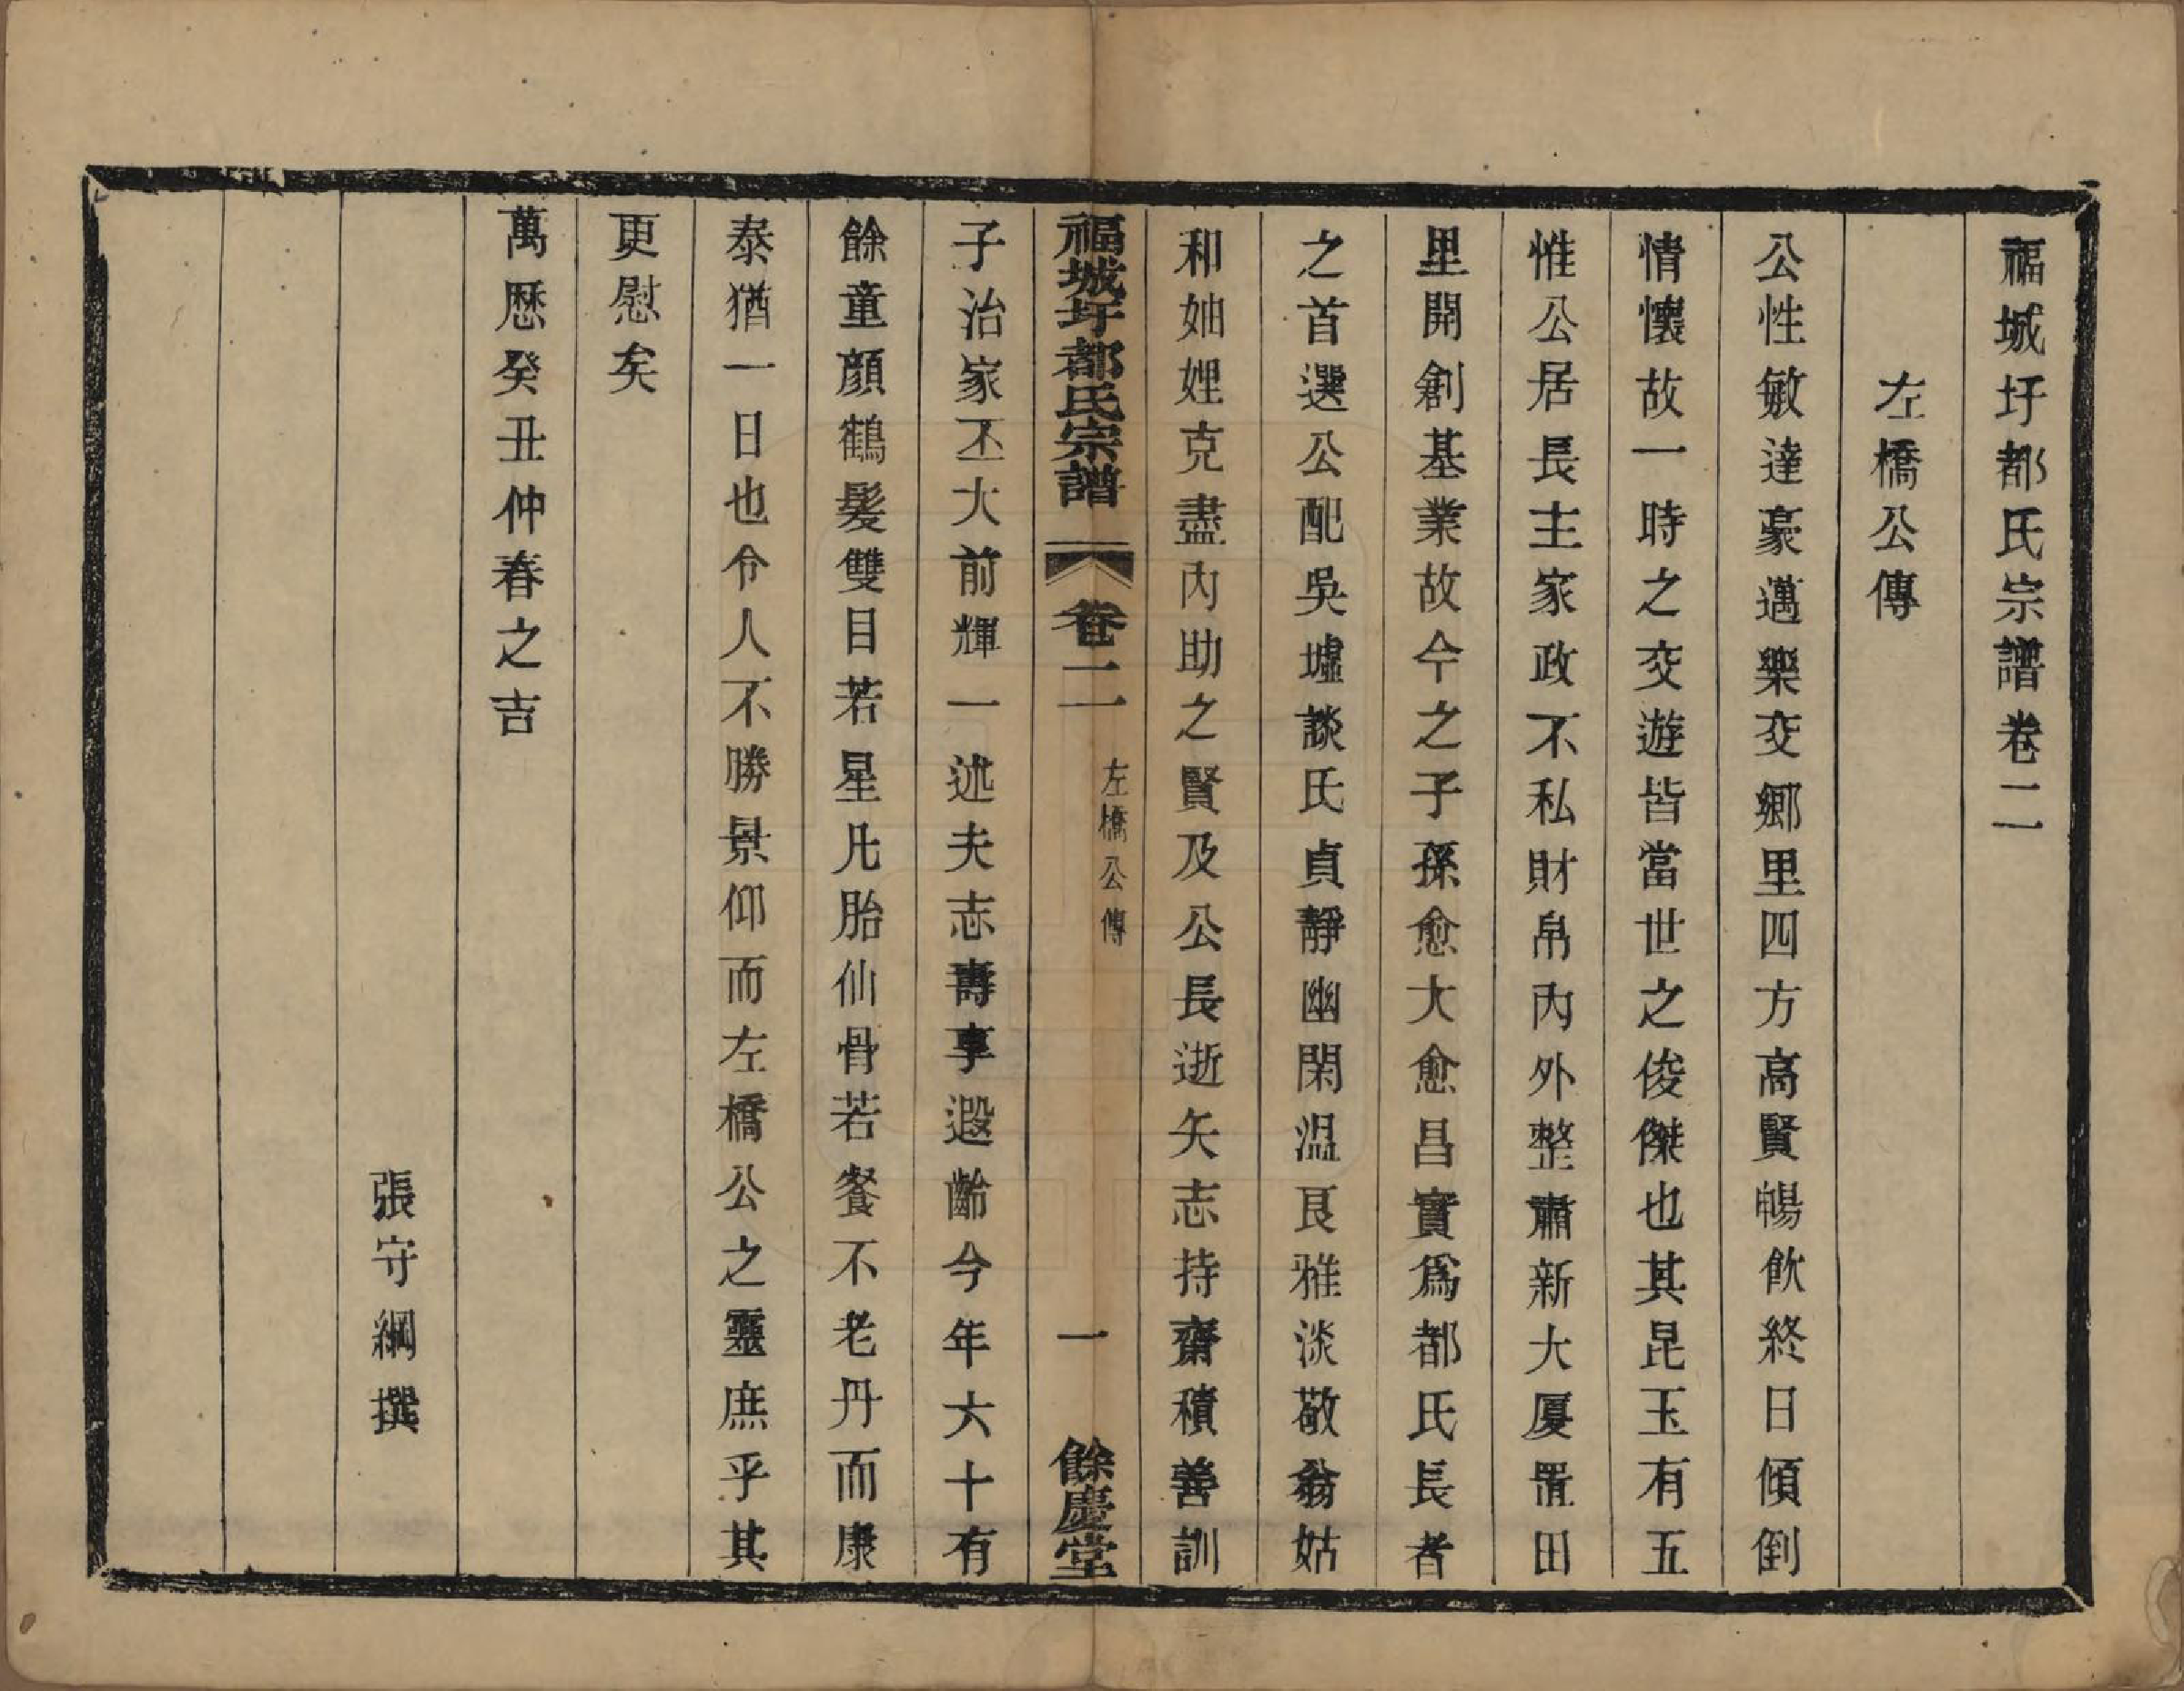 福城圩都氏宗譜卷二
左橋公傳
公性敏達豪邁樂交鄉里四方高賢暢飲終日傾倒
情懷故一時之交遊皆當世之俊傑也其昆玉有五
惟公居長主家政不私財帛內外整肅新大厦置田
里開創基業故今之子孫愈大愈昌實爲都氏長者
之首選公配吳墟談氏貞靜幽閑温良雅淡敬翁姑
和妯娌克盡內助之賢及公長逝矢志持齋積善訓
福城圩都氏宗譜 卷二 左橋公傳 一 餘慶堂
子治家丕大前輝一述夫志壽享遐齡今年六十有
餘童顏鶴髮雙目若星凡胎仙骨若餐不老丹而康
泰猶一日也令人不勝景仰而左橋公之靈庶乎其
更慰矣
萬歷癸丑仲春之吉
張守綱撰